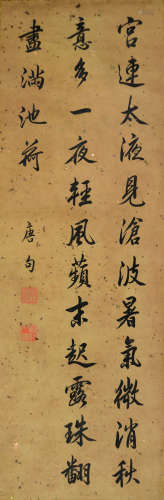 宮連太液見滄波暑氣微消秋
意多一夜輕風蘋末起露珠翻
盡滿池荷
唐句